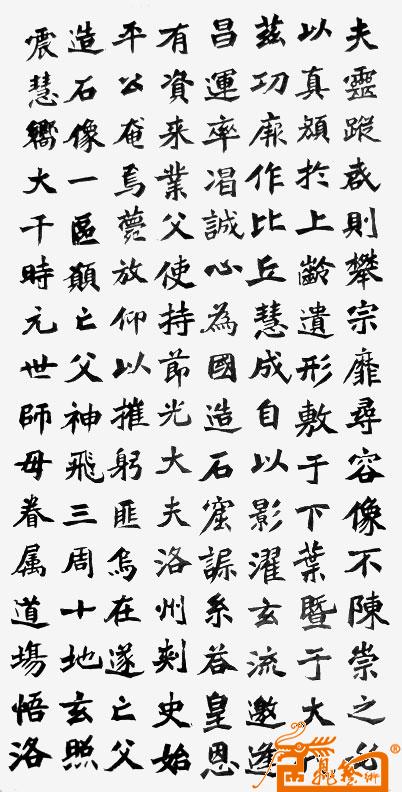 夫靈蹤咸則攀宗靡尋容像不陳崇之必
以真頹於上齡遺形敷于下葉暨于大
茲功廉作比丘慧成自以影濯玄流邀逢
昌運率渴誠心為國造石窟詠糸荅皇恩
有資来業父使持節光大夫洛州刾史始
平公奄焉薨放仰以摧躬匪烏在遂亡父
造石像一區願亡父神飛三周十地玄照
震慧嚮大千時元世師母眷属道場悟洛